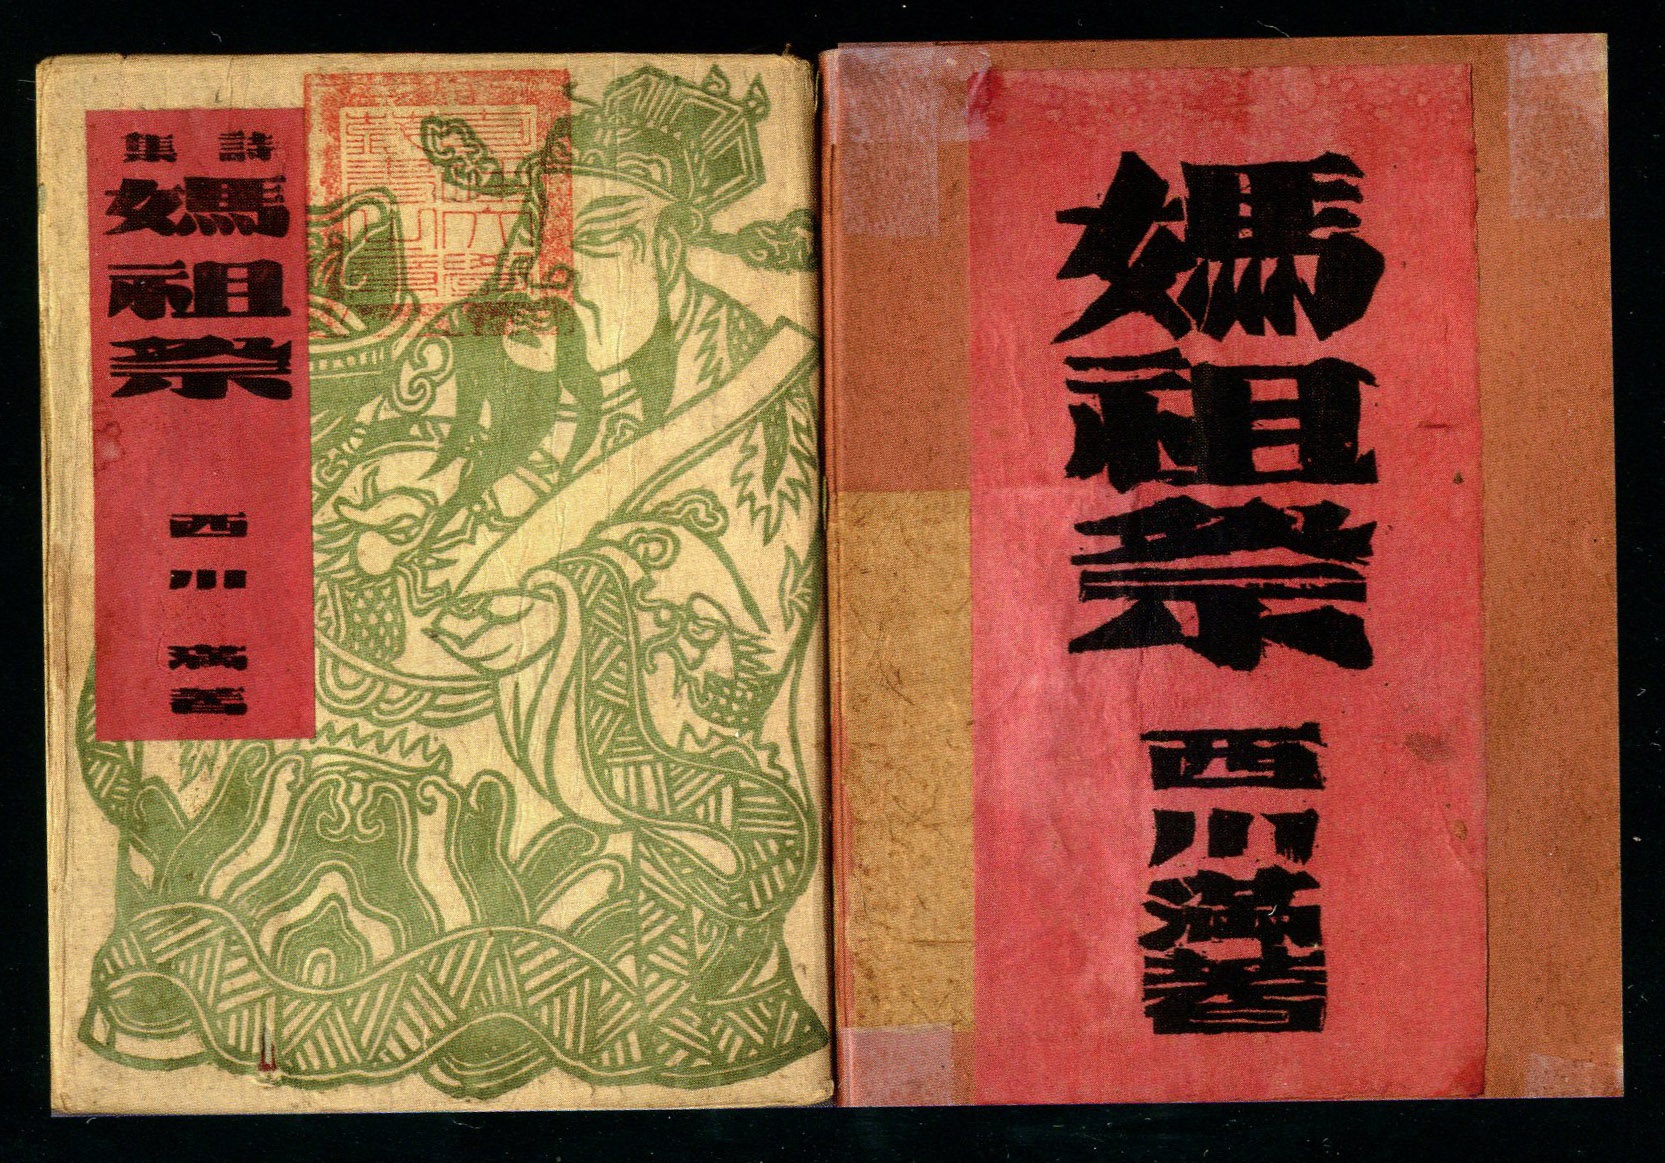 詩集
媽祖祭
西川滿著
媽祖祭
西川滿著